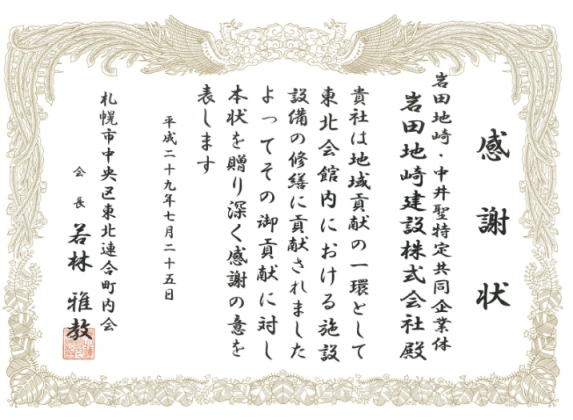 感謝状
岩田地崎・中井聖特定共同企業体
岩田地崎建設株式会社殿
貴社は地域貢献の一環として
東北会館内における施設
設備の修繕に貢献されました
よってその御貢献に対し
本状を贈り深く感謝の意を
表します
平成二十九年七月二十五日
札幌市中央区東北連合町内会
会長 若林雅教